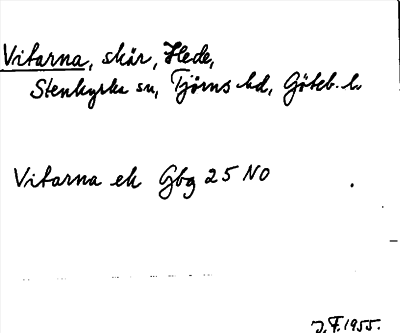 Vitarna, skär, Hede,
Stenkyrka sn, Tjörns hd, Göteb. l.
Vitarna ek Gbg 25 NO
J.F. 1955.